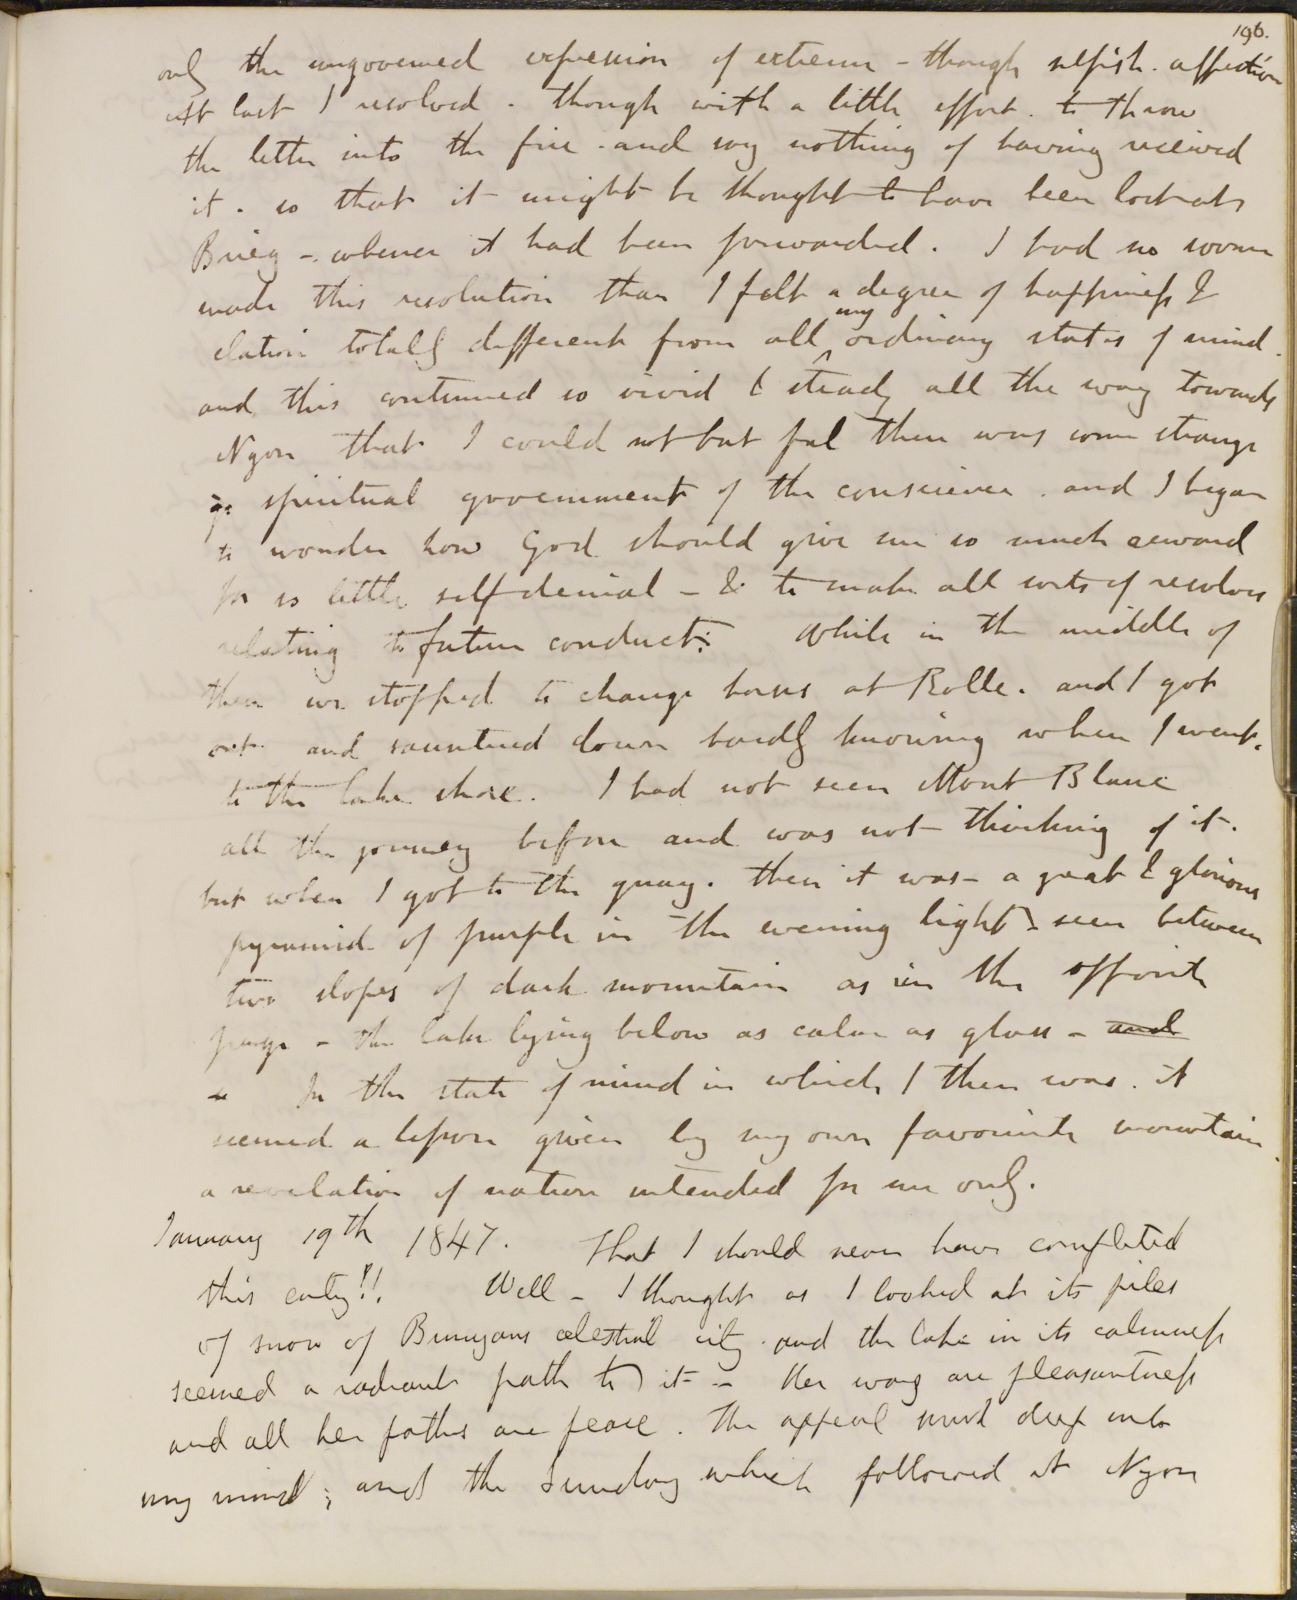 196.
only the ungoverned expression of extreme - though selfish. affection
At last I resolved. though with a little effort. to throw
the letter into the fire. and say nothing of having received
it. so that it might be thought to have been lost at
Brieg -. whence it had been forwarded. I had no sooner
made this resolution than I felt a degree of happiness &
elation totally different from all my ordinary states of mind.
and this continued so vivid & steady all the way towards
Nyon that I could not but feel there was some strange
spiritual government of the conscience. and I began
to wonder how God should give me so much reward
for so little self denial - & to make all sorts of resolves
relating to future conduct: While in the middle of
them we stopped to change horses at Rolle. and I got
out. and sauntered down hardly knowing where I went.
to the lake shore. I had not seen Mont Blanc
all the journey before and was not thinking of it.
but when I got to the quay. there it was - a great & glorious
pyramid of purple in the evening light seen between
two slopes of dark mountain as in the opposite
page - the lake lying below as calm as glass - and
In the state of mind in which I then was. it
seemed a lesson given by my own favourite mountain.
a revelation of nature intended for me only.
January 19th 1847. That I should never have completed
this entry!! Well - I thought as I looked at its piles
of snow of Bunyans celestial city. and the lake in its calmness
seemed a radiant path to it - Her ways are pleasantness
and all her paths are peace. The appeal sunk deep into
my mind; and the Sunday which followed at Nyon